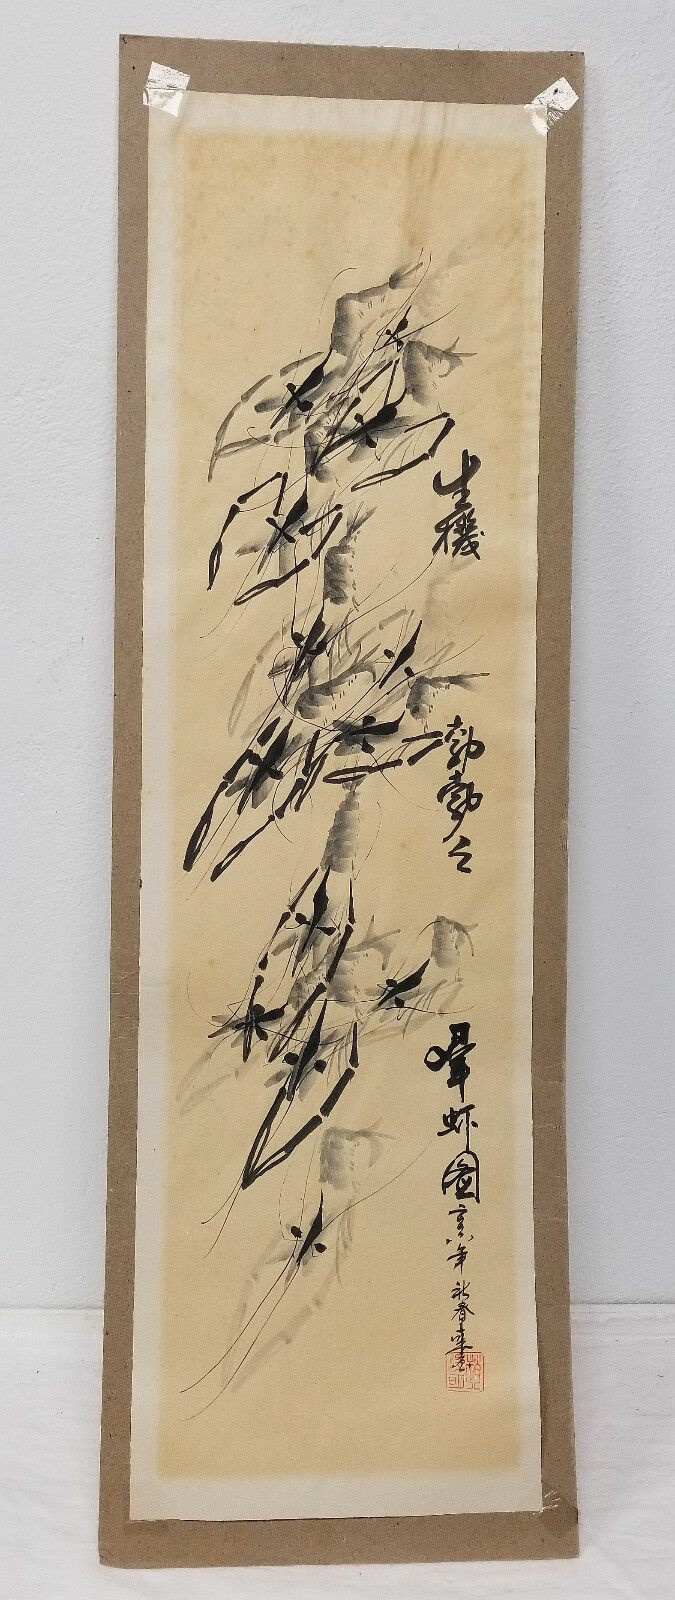 生機
勃勃之
群虾图亥年新春